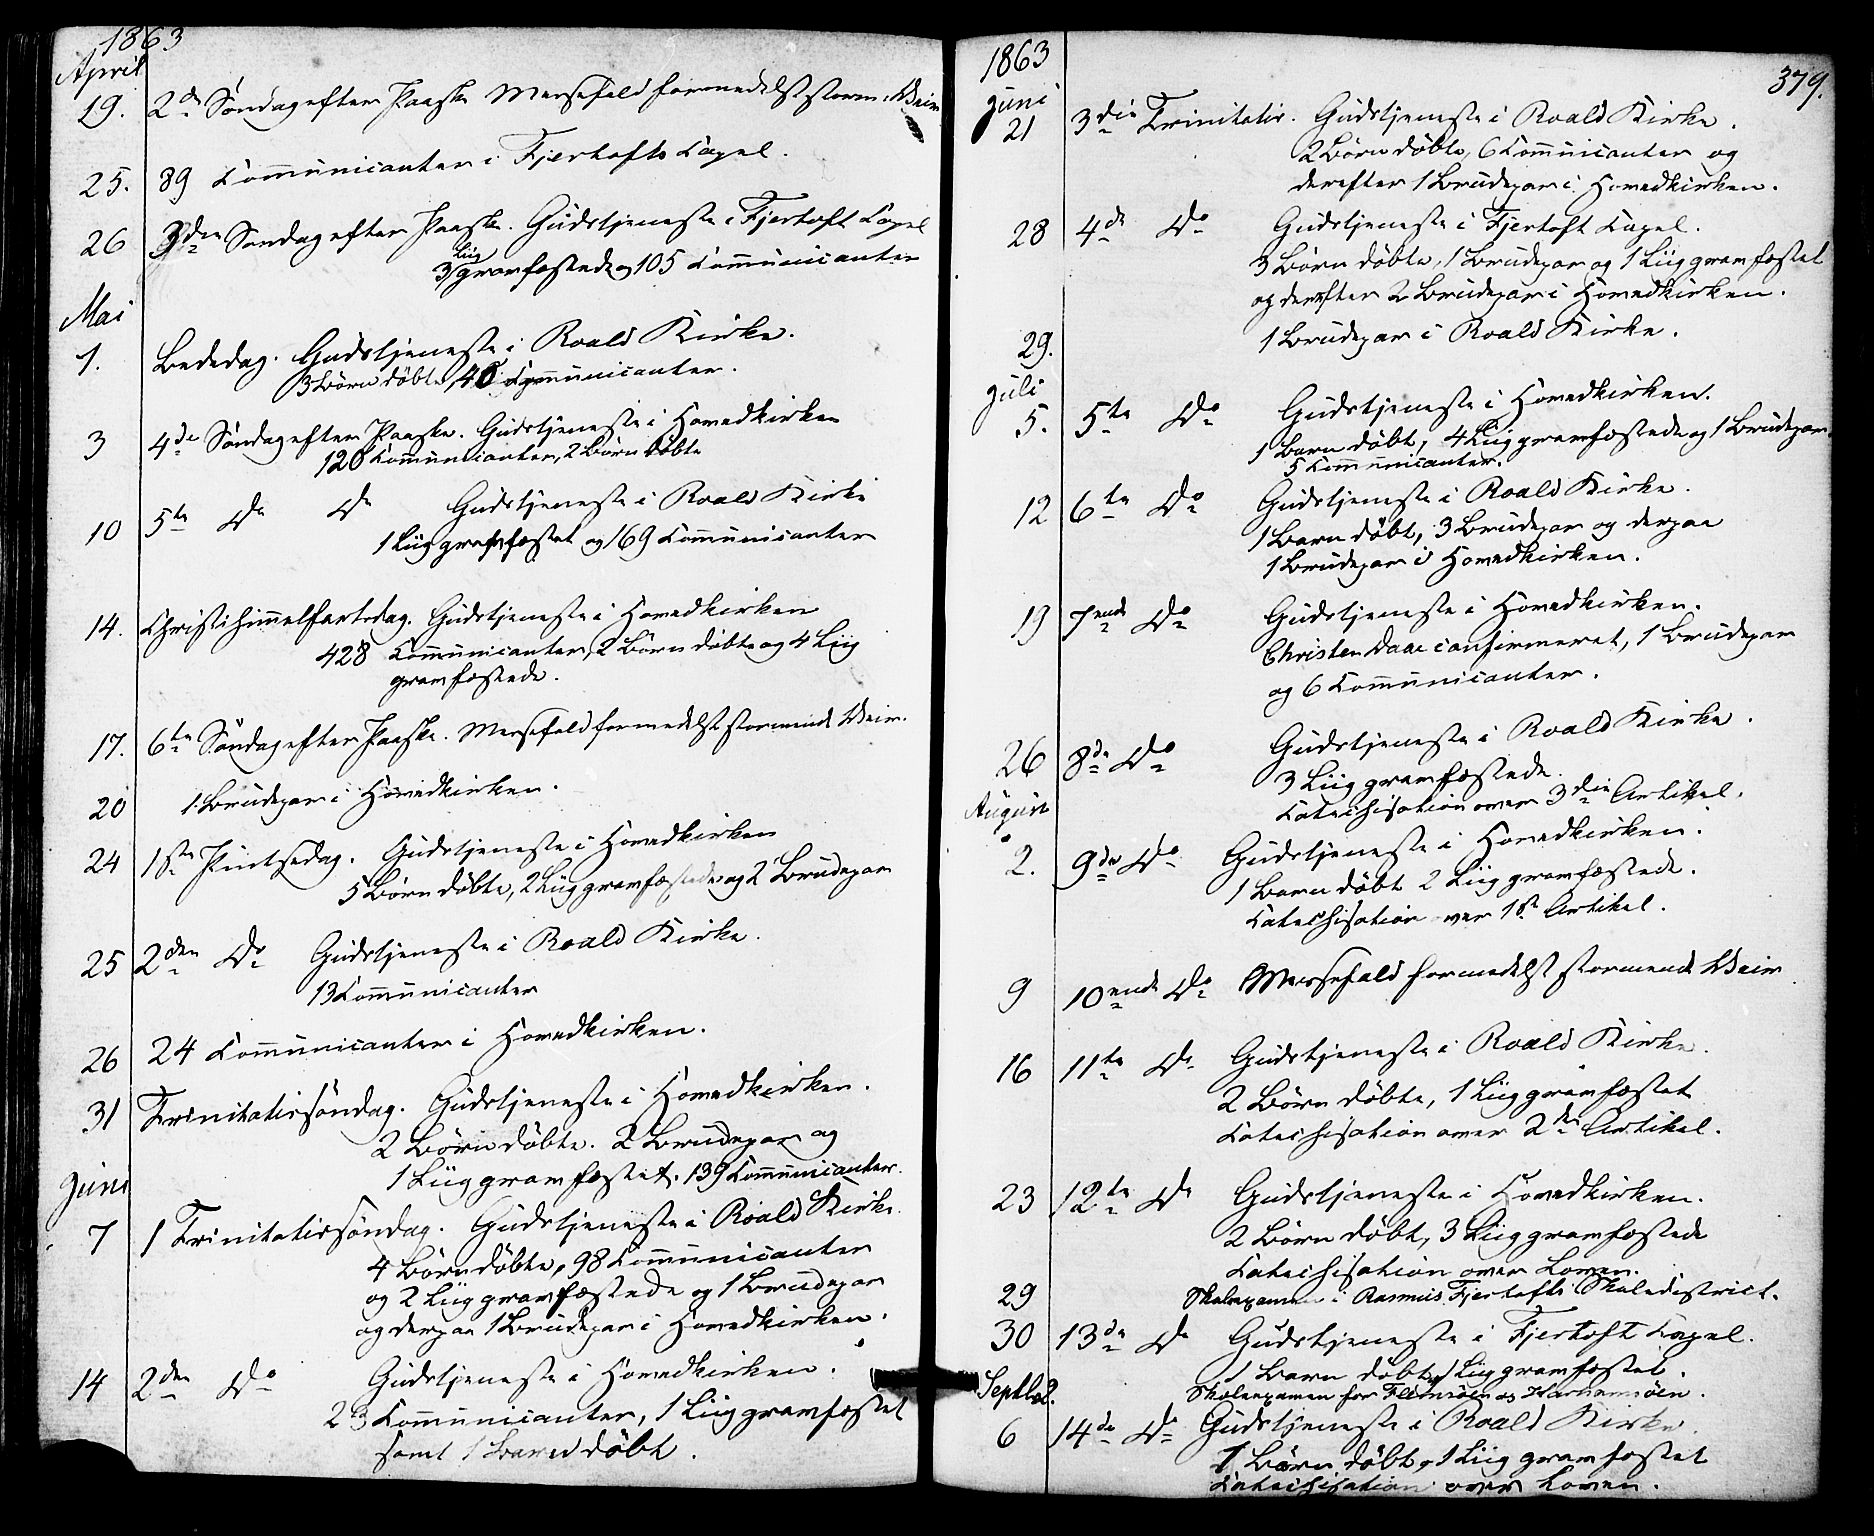 1863
April
19. 2de Søndag efter Paaske Messefald formedelst storm: Veir
25. 89 Communicanter i Fjertofts Capel.
26 3die Søndag efter Paaske. Gudstjeneste i Fjertoft Capel
3 Liig gravfæstede og 105 Communicanter
Mai
1. Bededag. Gudstjeneste i Roald Kirke.
3 Børn døbte, 40 Communicanter.
3 4de Søndag efter Paaske. Gudstjeneste i Hovedkirken
120 Communicanter, 2 Børn døbte
10 5te Do Do Gudstjeneste i Roald Kirke
1 Liig gravfæstet og 169 Communicanter
14. Christi himmelfartsdag. Gudstjeneste i Hovedkirken
428 Communicanter, 2 Børn døbte og 4 Liig
gravfæstede.
17. 6te Søndag efter Paaske. Messefald formedelst stormende Veir.
20 1 Brudepar i Hovedkirken.
24 1ste Pintsedag. Gudstjeneste i Hovedkirken
5 Børn døbte, 2 Liig gravfæstede og 2 Brudepar
25 2den Do Gudstjeneste i Roald Kirke.
13 Communicanter
26 24 Communicanter i Hovedkirken.
31 Trinitatissøndag. Gudstjeneste i Hovedkirken.
2 Børn døbte. 2 Brudepar og
1 Liig gravfæstet. 139 Communicanter.
Juni
7 1 Trinitatissøndag. Gudstjeneste i Roald Kirke.
4 Børn døbte, 98 Communicanter
og 2 Liig gravfæstede og 1 Brudepar
og derpaa 1 Brudepar i Hovedkirken.
14 2den Do Gudstjeneste i Hovedkirken.
23 Communicanter, 1 Liig gravfæstet
samt 1 Barn døbt.
1863
379.
Juni
21 3die Trinitatis. Gudstjeneste i Roald Kirke.
2 Børn døbte, 6 Communicanter og
derefter 1 Brudepar i Hovedkirken.
28 4de Do Gudstjeneste i Fjertoft Capel.
3 Børn døbte, 1 Brudepar og 1 Liig gravfæstet
og derefter 2 Brudepar i Hovedkirken.
29. 1 Brudepar i Roald Kirke.
Juli
5. 5te Do Gudstjeneste i Hovedkirken.
1 Barn døbt, 4 Liig gravfæstede og 1 Brudepar.
5 Communicanter.
12 6te Do Gudstjeneste i Roald Kirke.
1 Barn døbt, 3 Brudepar og derpaa
1 Brudepar i Hovedkirken.
19 7ende Do Gudstjeneste i Hovedkirken.
Christen Daae confirmeret, 1 Brudepar
og 6 Communicanter.
26 8de Do Gudstjeneste i Roald Kirke.
3 Liig gravfæstede.
Catechisation over 3die Artikel.
August
2. 9de Do Gudstjeneste i Hovedkirken.
1 Barn døbt 2 Liig gravfæstede.
Catechisation over 1ste Artikel.
9 10ende Do Messefald formedelst stormende Veir
16 11te Do Gudstjeneste i Roald Kirke.
2 Børn døbte, 1 Liig gravfæstet
Catechisation over 2den Artikel.
23 12te Do Gudstjeneste i Hovedkirken.
2 Børn døbt, 3 Liig gravfæstede
Catechisation over Loven.
29 Skoleexamen i Rasmus Fjertofts Skoledistrict.
30 13de Do Gudstjeneste i Fjertoft Capel.
1 Barn døbt, 1 Liig gravfæstet.
Septbr 2. Skoleexamen for Flemsøen og Harhamsøen.
6 14de Do Gudstjeneste i Roald Kirke.
1 Børn døbt, 1 Liig gravfæstet
Catechisation over Loven.